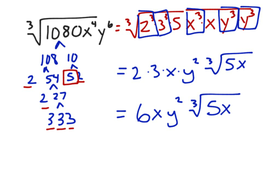 ∛1080x⁴y⁶ = ∛2³ 3³ 5 x³·x y³ y³
108 10
2 54 5 2
2 27
3 3 3
= 2·3·x·y² ∛5x
= 6xy² ∛5x